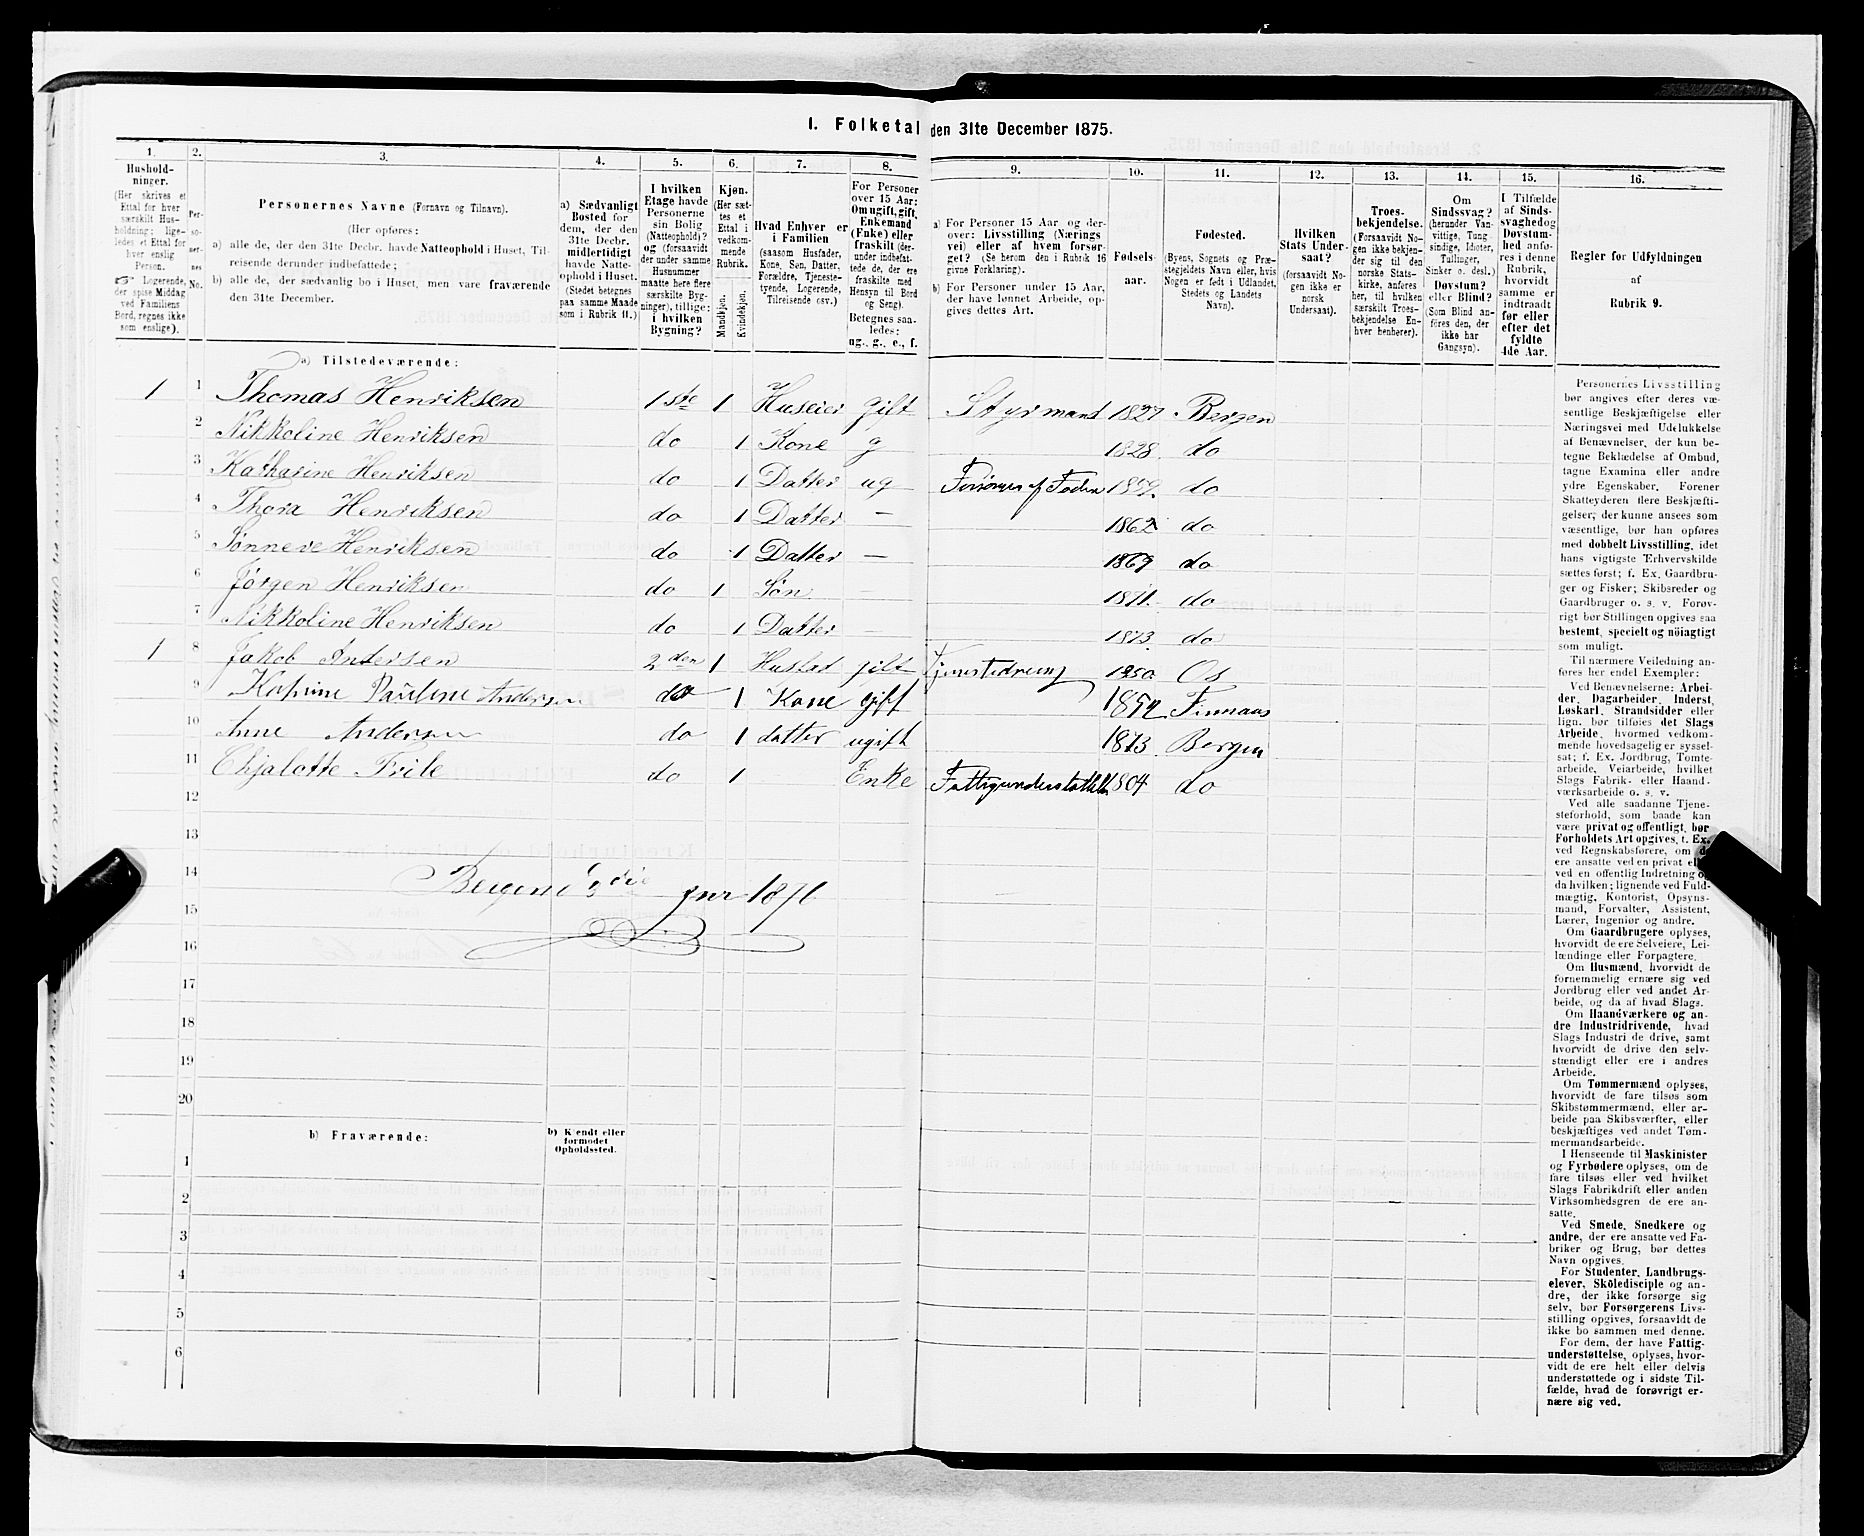 1. Folketal den 31te December 1875.
1. 2. 3. 4. 5. 6. 7. 8. 9. 10. 11. 12. 13. 14. 15. 16.
Hushold-
ninger.
(Her skrives et
Ettal for hver
særskilt Hus-
holdning: lige-
ledes et Ettal for
hver enslig
Person.
☞ Logerende,
der spise Middag
ved Familiens
Bord, regnes ikke
som enslige).
Per-
so-
ner-
nes
No.
Personernes Navne (Fornavn og Tilnavn).
(Her opføres:
a) alle de, der den 31te Decbr. havde Natteophold i Huset, Til-
reisende derunder indbefattede;
b) alle de, der sædvanlig bo i Huset, men vare fraværende
den 31te December.
a) Sædvanligt
Bosted for
dem, der den
31te Decbr.
midlertidigt
havde Natte-
ophold i Huset.
(Stedet betegnes
paa samme Maade
som i Rubrik 11.)
I hvilken
Etage havde
Personerne
sin Bolig
(Natteophold)?
og (forsaavidt
der under samme
Husnummer
maatte høre flere
særskilte Byg-
ninger), tillige:
i hvilken
Bygning?
Kjøn.
(Her sæt-
tes et
Ettal i
vedkom-
mende
Rubrik.
Mandkjøn.
Kvindekjøn.
Hvad Enhver er
i Familien
(saasom Husfader,
Kone, Søn, Datter,
Forældre, Tjeneste-
tyende, Logerende,
Tilreisende osv.)
For Personer
over 15 Aar:
Om ugift, gift,
Enkemand
(Enke) eller
fraskilt (der-
under indbefat-
tede de, der ere
fraskilte med
Hensyn til Bord
og Seng).
Betegnes saa-
ledes:
ug., g., e., f.
a) For Personer 15 Aar og der-
over: Livsstilling (Nærings
vei) eller af hvem forsør-
get? (Se herom den i Rubrik 16
givne Forklaring).
b) For Personer under 15 Aar,
der have lønnet Arbeide, op-
gives dettes Art.
Fødsels-
aar.
Fødested.
(Byens, Sognets og Præ-
stegjeldets Navn eller, hvis
Nogen er født i Udlandet,
Stedets og Landets
Navn).
Hvilken
Stats Under-
saat?
(forsaavidt No-
gen ikke er
norsk
Undersaat).
Troes-
bekjendelse.
(Forsaavidt No-
gen ikke bekjen-
der sig til den
norske Stats-
kirke, anføres
her, til hvilken
særskilt Troes-
bekjendelse En-
hver henhører).
Om
Sindssvag?
(herunder Van-
vittige, Tung-
sindige, Idioter,
Tullinger,
Sinker o. desl.)
Døvstum?
eller Blind?
(Som Blind an-
føres den, der
ikke har
Gangsyn).
I Tilfælde
af Sinds-
svaghed og
Døvstum-
hed anfø-
res i denne
Rubrik,
hvorvidt
samme er
indtraadt
før eller
efter det
fyldte
4de Aar.
Regler for Udfyldningen
af
Rubrik 9.
a) Tilstedeværende:
1 1 Thomas Henriksen 1ste 1 Huseier gift Styrmand 1827 Bergen
2 Nikkoline Henriksen do 1 Kone g 1828. do
3 Katharine Henriksen do 1 Datter ug Forsørges af Faderen 1859. do
4 Thora Henriksen do 1 Datter — 1862 do
5 Sønneve Henriksen do 1 Datter — 1869 do
6 Jørgen Henriksen do 1 Søn — 1871. do
7 Nikkoline Henriksen do 1 Datter — 1873. do
1 8 Jakob Andersen 2den 1 Husfad gift 1850. Os
9 Pauline Andersen do 1 Kone gift Finnaas
10 Anne Andersen do 1 datter ugift 1873 Bergen
11 Chjalotte Friile do 1 Enke Fattigunderstøttelse 1804 do
12
13
14 Bergen
15
16
17
18
19
20
b) Fraværende:
b) Kjendt eller
formodet
Opholdssted.
1
2
3
4
5
6
Personernes Livsstilling
bør angives efter deres væ-
sentlige Beskjæftigelse eller
Næringsvei med Udelukkelse
af Benævnelser, der kun be-
tegne Beklædelse af Ombud,
tagne Examina eller andre
ydre Egenskaber. Forener
Skatteyderen flere Beskjæfti-
gelser; der kunne ansees som
væsentlige, bør han opføres
med dobbelt Livsstilling, idet
hans vigtigste Erhvervskilde
sættes først; f. Ex. Gaardbru-
ger og Fisker; Skibsreder og
Gaardbruger o. s. v. Forøv-
rigt bør Stillingen opgives saa
bestemt, specielt og nöiagtigt
som muligt.
Til nærmere Veiledning an-
føres her endel Exempler:
Ved Benævnelserne: Arbei-
der, Dagarbeider, Inderst,
Løskarl, Strandsidder eller
lign. bør tilføies det Slags
Arbeide, hvormed vedkom-
mende hovedsagelig er syssel-
sat; f. Ex. Jordbrug, Tomte-
arbeide, Veiarbeide, hvilket
Slags Fabrik- eller Haand-
værksarbeide o. s. v.
Ved alle saadanne Tjene-
steforhold, som baade kan
være privat og offentligt, bør
Forholdets Art opgives, t. Ex.
ved Regnskabsførere, om de
ere ansatte ved en privat eller
ved en offentlig Indretning og
da hvilken; lignende ved Fuld-
mægtig, Kontorist, Opsyns-
mand, Forvalter, Assistent,
Lærer, Ingeniør og andre.
Om Gaardbrugere oplyses,
hvorvidt de ere Selveiere, Lei-
lændinge eller Forpagtere.
Om Husmænd, hvorvidt de
fornemmelig ernære sig ved
Jordbrug eller ved andet Ar-
beide, og da af hvad Slags.
Om Haandværkere og an-
dre Industridrivende, hvad
Slags Industri de drive, samt
hvorvidt de drive den selv-
stændigt eller ere i andres
Arbeide.
Om Tømmermænd oplyses,
hvorvidt de fare tilsøs som
Skibstømmermænd, eller ar-
beide paa Skibsværfter, eller
beskjæftiges ved andet Tøm-
mermandsarbeide.
I Henseende til Maskinister
og Fyrbødere oplyses, om de
fare tilsøs eller ved hvilket
Slags Fabrikdrift eller anden
Virksomhedsgren de ere an-
satte.
Ved Smede, Snedkere og
andre, der ere ansatte ved Fa-
briker og Brug, bør dettes
Navn opgives.
For Studenter, Landbrugs-
elever, Skoledisciple og an-
dre, der ikke forsørge sig
selv, bør Forsørgerens Livs-
stilling opgives, forsaavidt de
ikke bo sammen med denne.
For dem, der have Fattig-
understøttelse, oplyses, hvor-
vidt de ere helt eller delvis
understøttede og i sidste Til-
fælde, hvad de forøvrigt er-
nære sig ved.